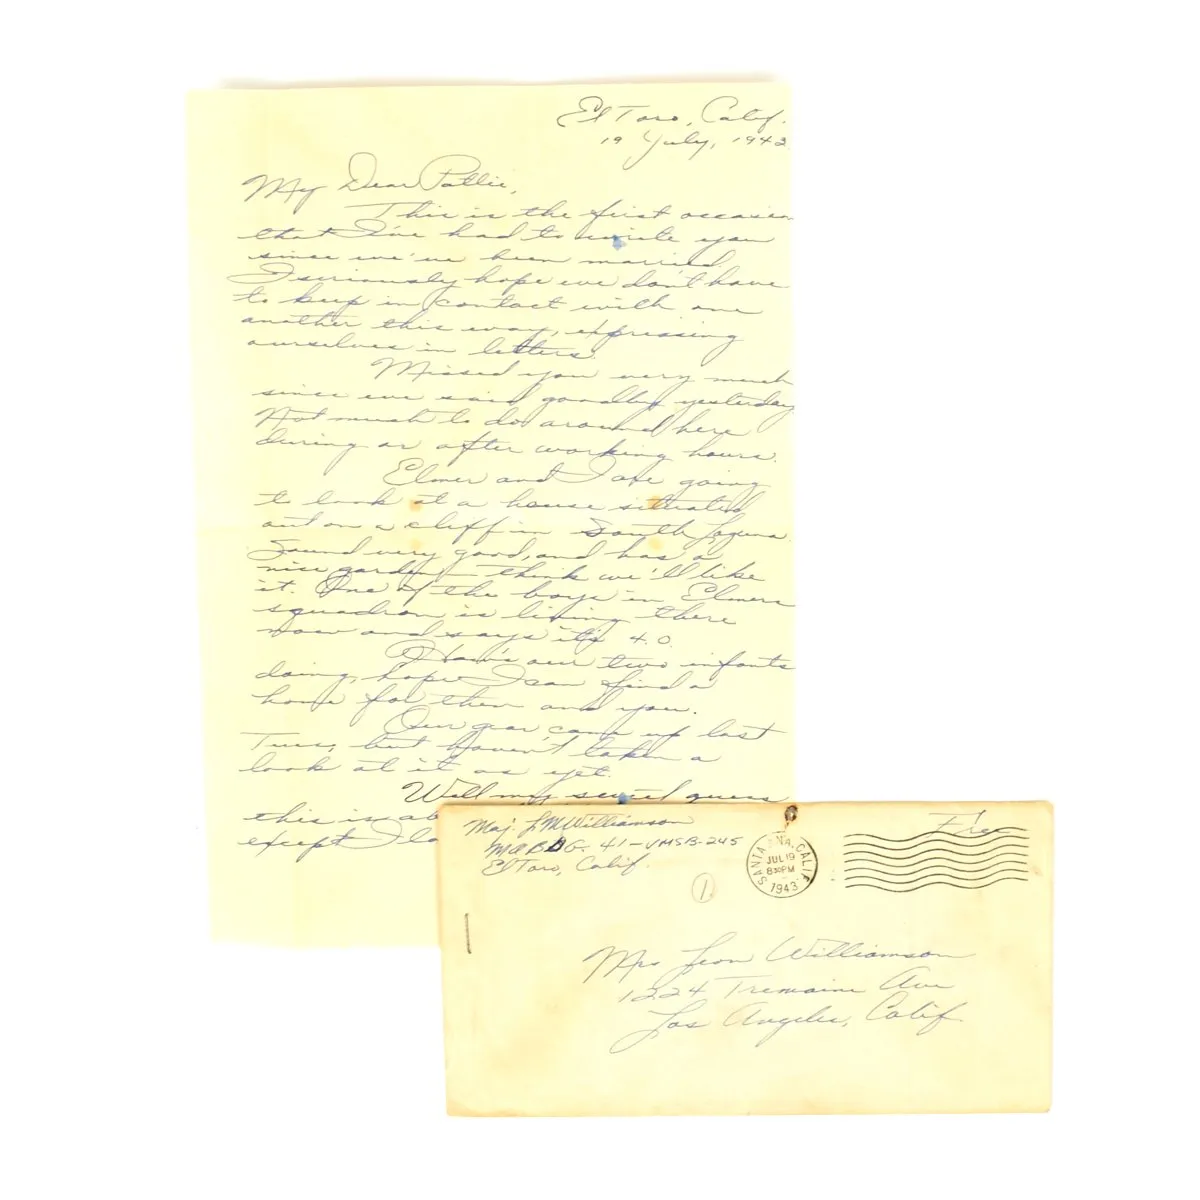 El Toro, Calif.
19 July, 1943
My Dear Pattie,
This is the first occasion
that I've had to write you
since we've been married.
I seriously hope we don't have
to keep in contact with one
another this way, expressing
ourselves in letters.
Missed you very much
since we said goodby yesterday
Not much to do around here
during or after working hours.
Elmer and I are going
to look at a house situated
out on a cliff in South Laguna.
Sound very good, and has a
nice garden - think we'll like
it. One of the boys in Elmers
squadron is living there
now and says its 4.0.
How's our two infants
doing, hope I can find a
home for them and you.
Our gear came up last
Tues, but haven't taken a
look at it as yet.
Well my sweet guess
this is ab
except I lo
Maj. L M Williamson
BDG. 41-VMSB-245
El Toro, Calif.
SANTA ANA, CALIF.
JUL 19
8 30 PM
1943
Free
1
Mrs Leon Williamson
1224 Tremaine Ave
Los Angeles, Calif.